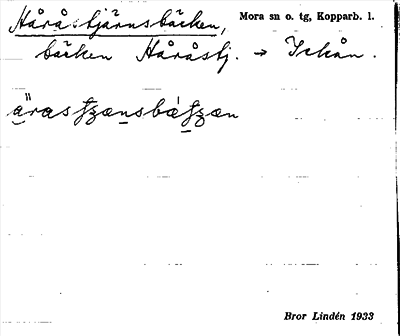 Hårå:stjärnsbäcken, Mora sn o. tg, Kopparb. l.
bäcken Håråstj. → Ickån.
Bror Lindén 1933